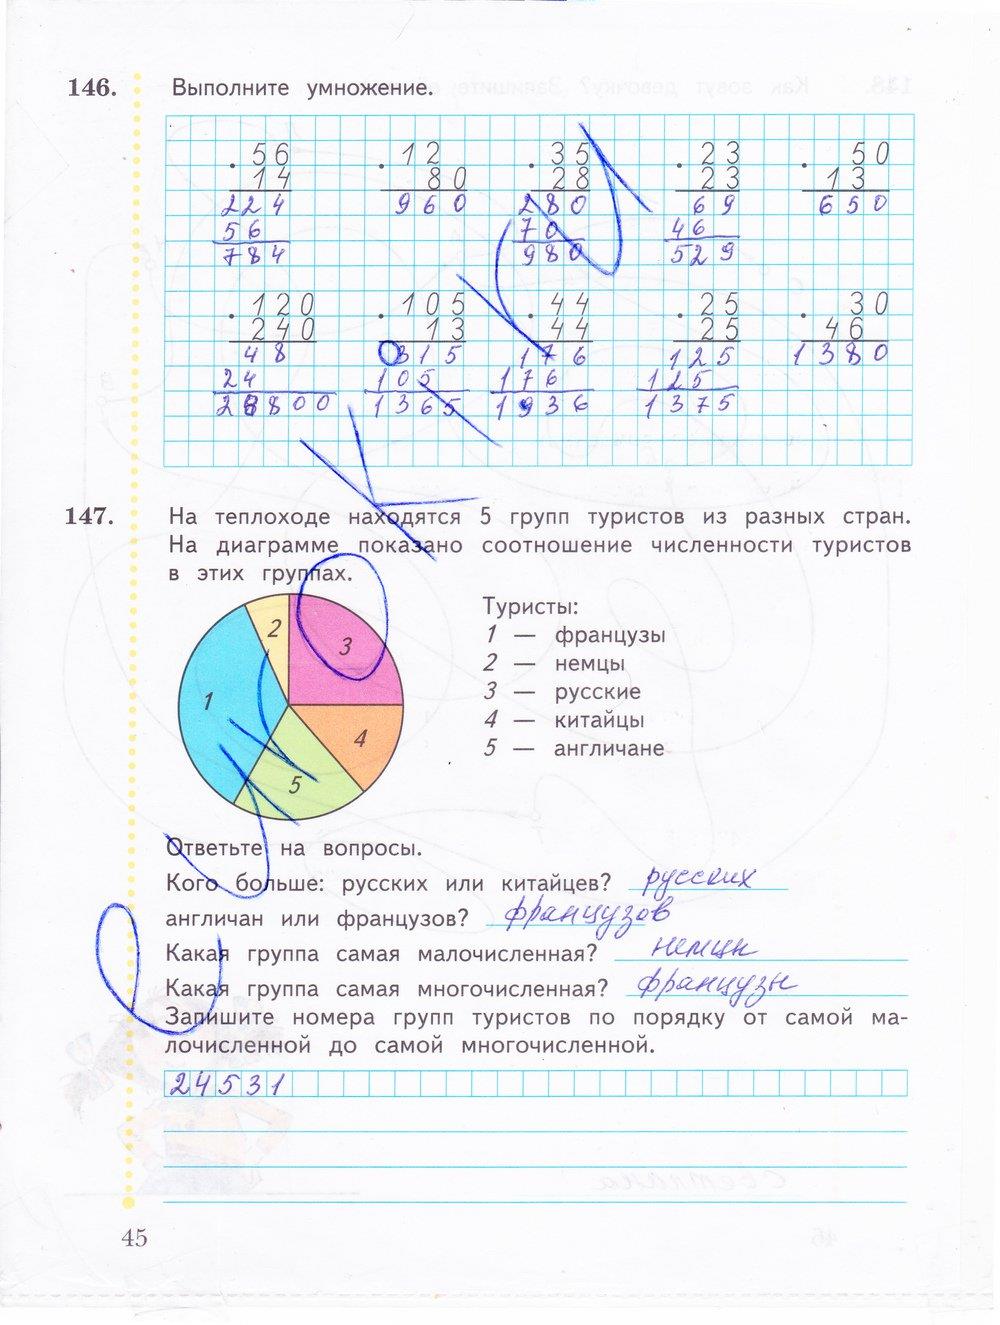 146. Выполните умножение.
56 12 35 23 50
14 80 28 23 13
224 960 280 69 650
56 70 46
784 980 529
120 105 44 25 30
240 13 44 25 46
48 0315 176 125 1380
24 105 176 125
28800 1365 1936 1375
147. На теплоходе находятся 5 групп туристов из разных стран.
На диаграмме показано соотношение численности туристов
в этих группах.
2
3
1
4
5
Туристы:
1 — французы
2 — немцы
3 — русские
4 — китайцы
5 — англичане
Ответьте на вопросы.
Кого больше: русских или китайцев? русских
англичан или французов? французов
Какая группа самая малочисленная? немцы
Какая группа самая многочисленная? французы
Запишите номера групп туристов по порядку от самой ма-
лочисленной до самой многочисленной.
24531
45